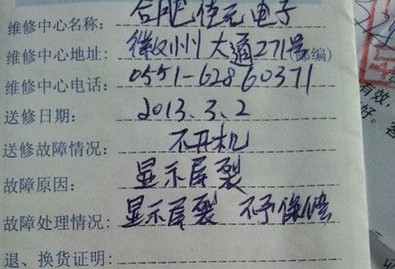 维修中心名称: 合肥佳元电子
维修中心地址: 徽州大道271号(邮编)
维修中心电话: 0551-62860371
送修日期: 2013.3.2
送修故障情况: 不开机
故障原因: 显示屏裂
故障处理情况: 显示屏裂 不予保修
退、换货证明: